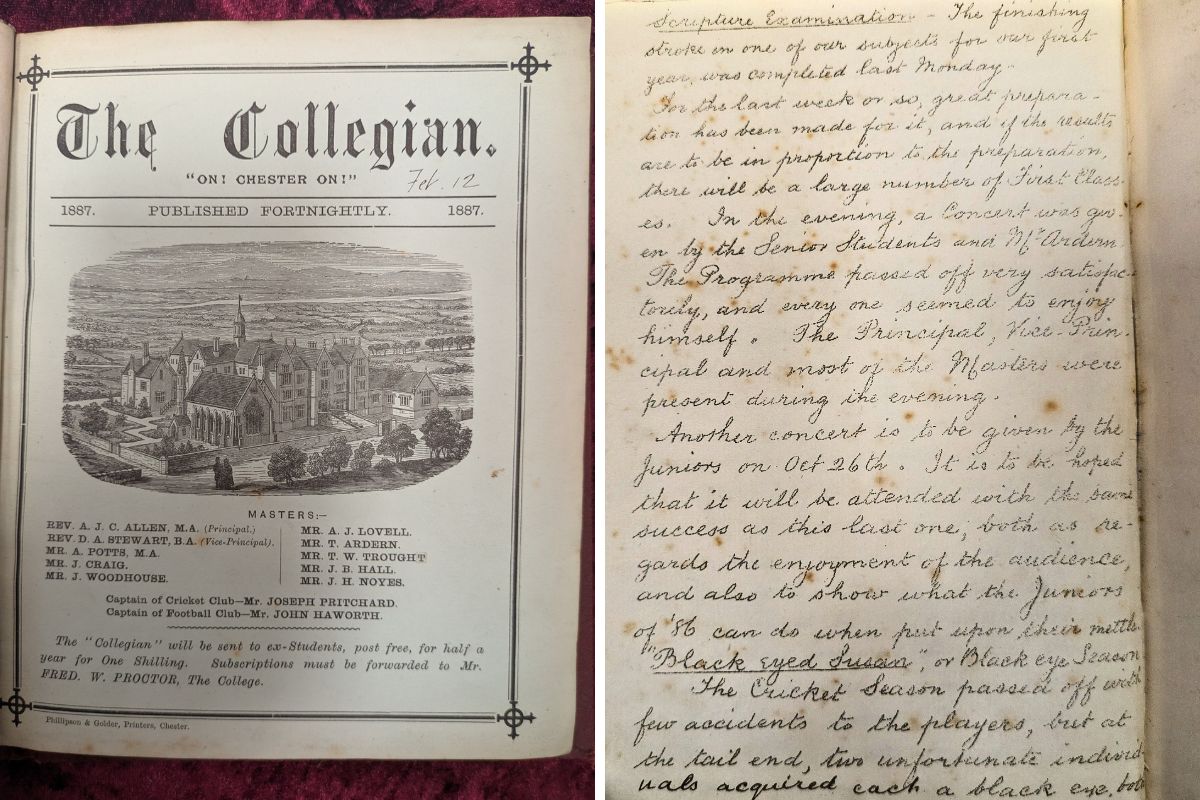 The Collegian.
"ON! CHESTER ON!"
Feb. 12
1887. PUBLISHED FORTNIGHTLY. 1887.
MASTERS:—
REV. A. J. C. ALLEN, M.A. (Principal.)
REV. D. A. STEWART, B.A. (Vice-Principal).
MR. A. POTTS, M.A.
MR. J. CRAIG.
MR. J. WOODHOUSE.
MR. A. J. LOVELL.
MR. T. ARDERN.
MR. T. W. TROUGHT
MR. J. B. HALL.
MR. J. H. NOYES.
Captain of Cricket Club—Mr. JOSEPH PRITCHARD.
Captain of Football Club—Mr. JOHN HAWORTH.
The "Collegian" will be sent to ex-Students, post free, for half a
year for One Shilling. Subscriptions must be forwarded to Mr.
FRED. W. PROCTOR, The College.
Phillipson & Golder, Printers, Chester.
Scripture Examination - The finishing
stroke in one of our subjects for our first
year, was completed last Monday.
For the last week or so, great prepara-
tion has been made for it, and if the results
are to be in proportion to the preparation,
there will be a large number of First Class-
es. In the evening, a Concert was giv-
en by the Senior Students and Mr Ardern.
The Programme passed off very satisfac-
torily, and every one seemed to enjoy
himself. The Principal, Vice-Prin-
cipal and most of the Masters were
present during the evening.
Another concert is to be given by the
Juniors on Oct 26th. It is to be hoped
that it will be attended with the same
success as this last one, both as re-
gards the enjoyment of the audience,
and also to show what the Juniors
of '86 can do when put upon their mettle.
"Black Eyed Susan", or Black eye Season
The Cricket Season passed off with
few accidents to the players, but at
the tail end, two unfortunate individ-
uals acquired each a black eye, both